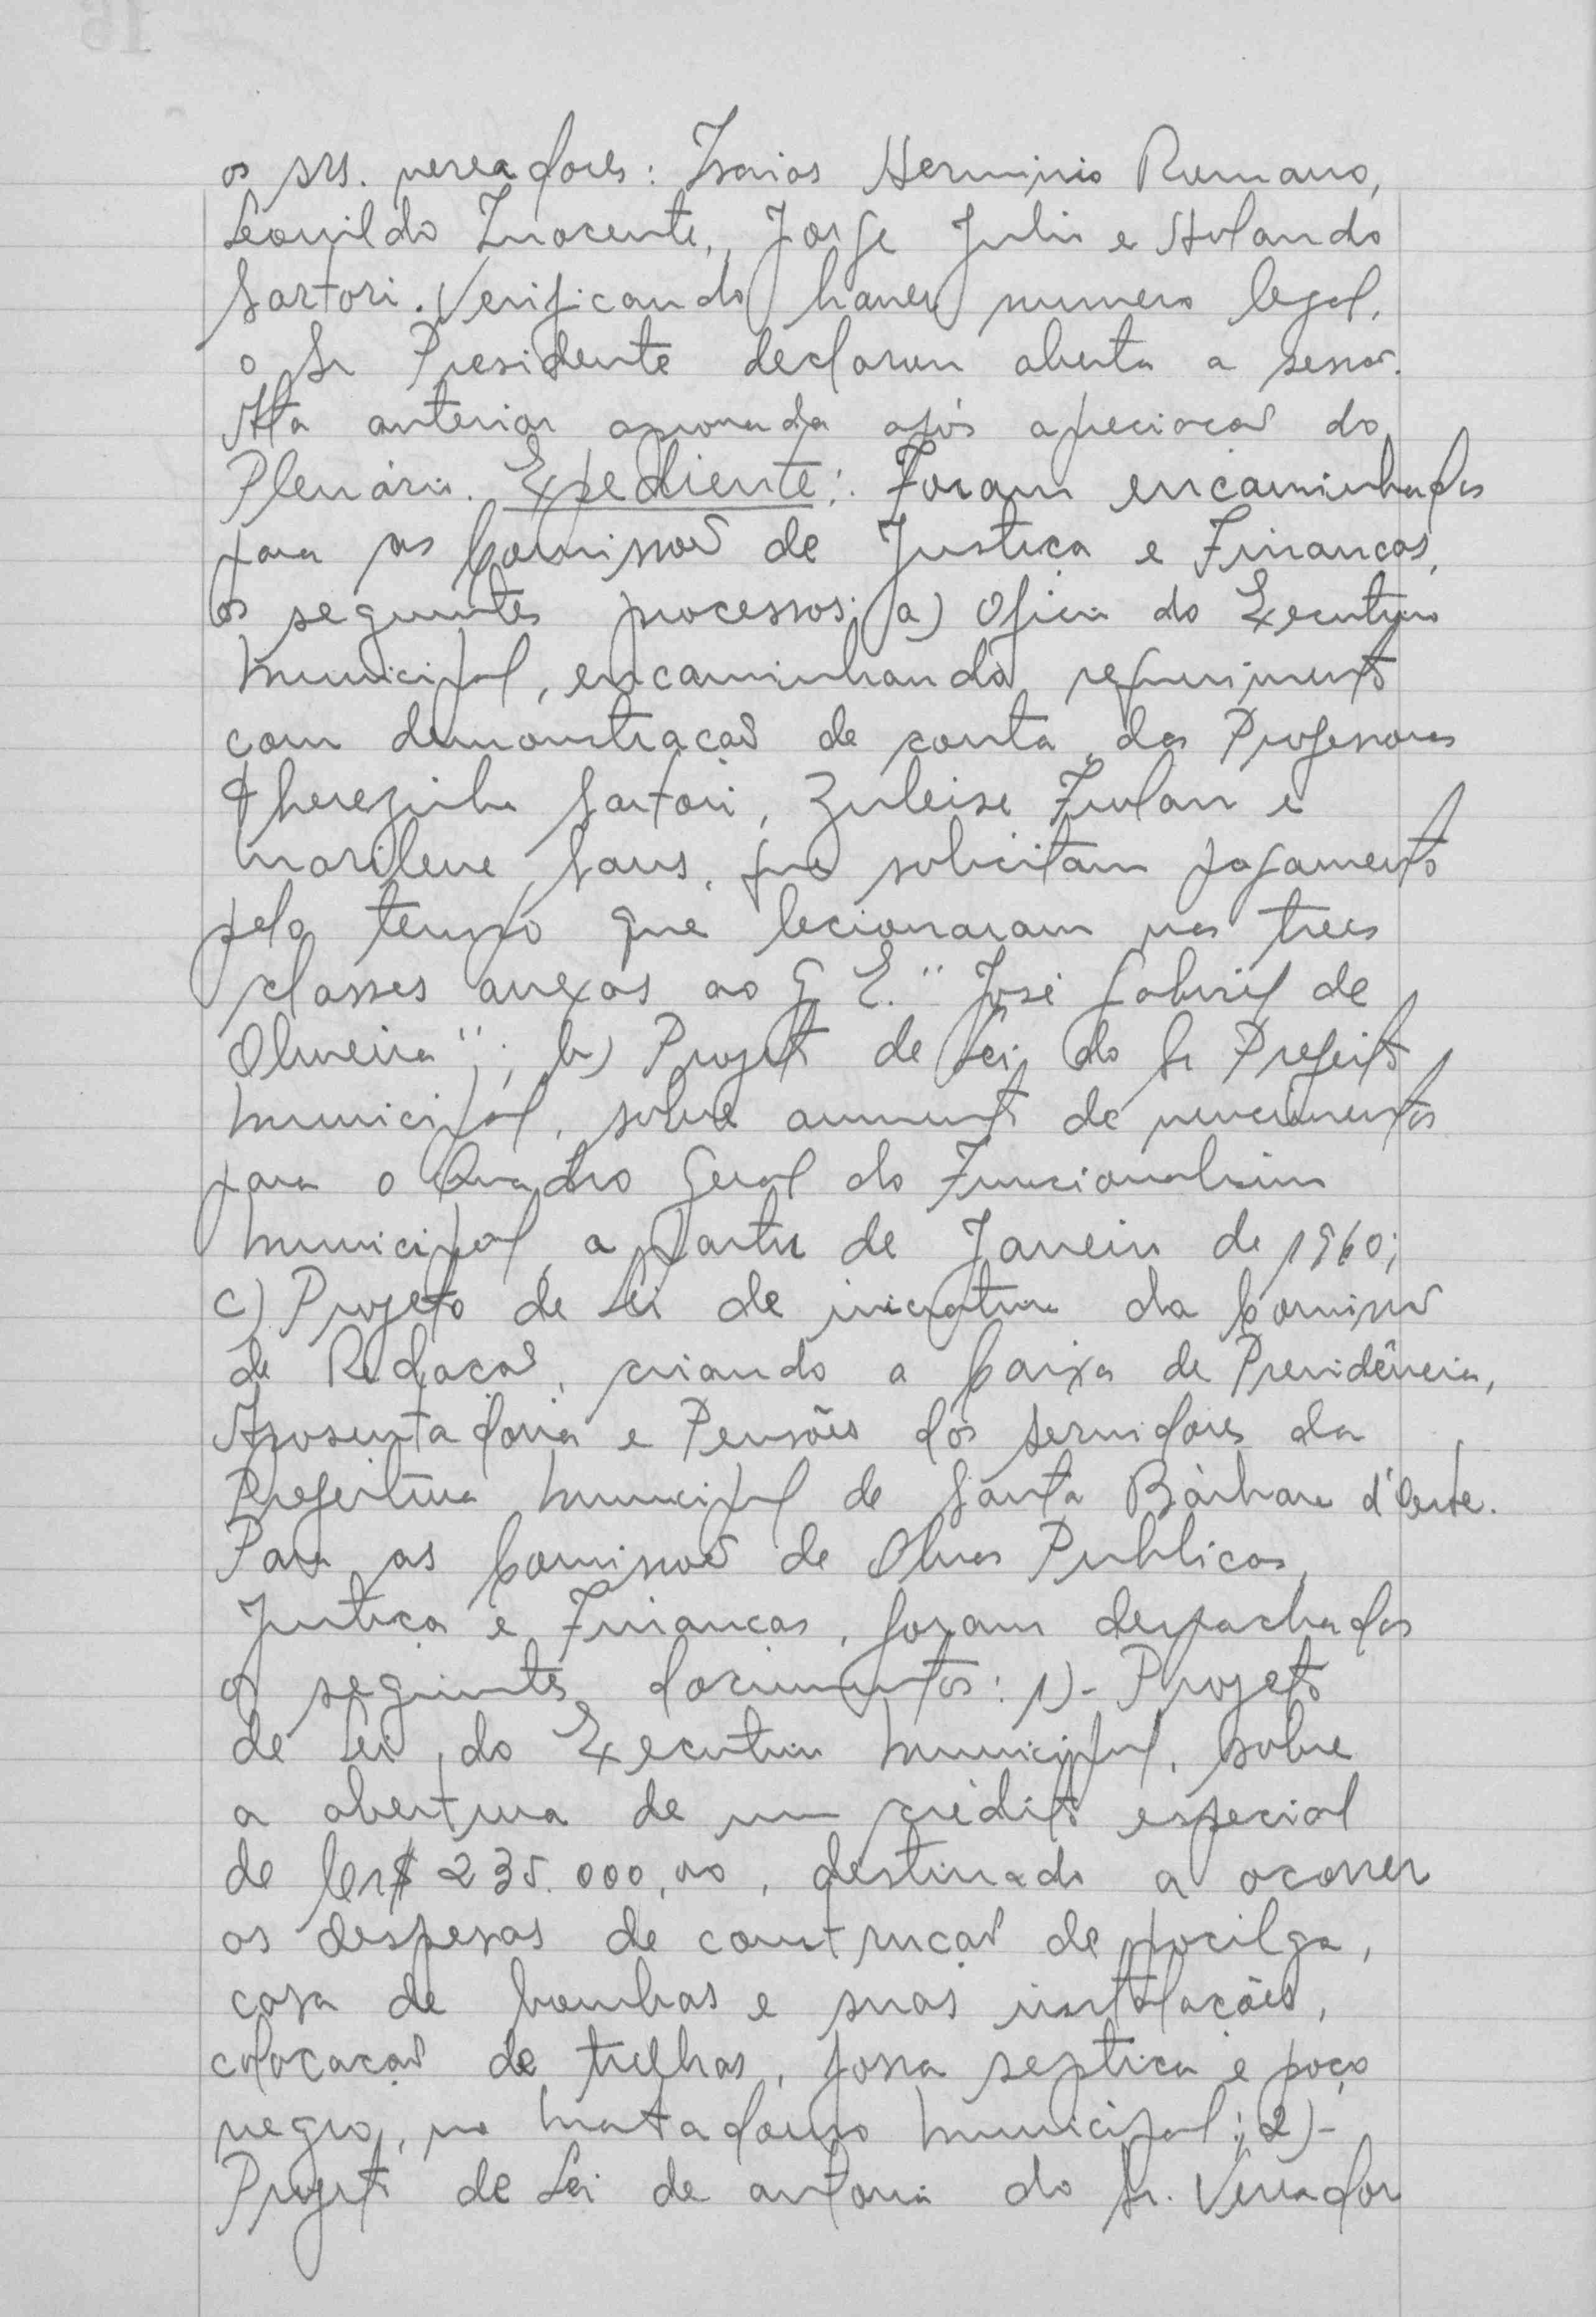 os srs. vereadores: Isaias Herminio Rumano,
Leonildo Inocente, Jorge Julio e Holando
Sartori. Verificando haver numero legal,
o Sr Presidente declarou aberta a sessão.
Ata anterior aprovada após apreciacão do
Plenário. Expediente: Foram encaminhados
para as Comissoẽs de Justica e Financas,
os seguintes processos: a) Oficio do Executivo
Municipal, encaminhando requerimento
com demonstracão de conta, das Professoras
Therezinha Sartori, Zuleise Furlan e
Marilene Sans, que solicitam pagamento
pelo tempo que lecionaram nas tres
classes anexas ao G. E. "José Gabriel de
Oliveira"; b) Projeto de Lei do Sr Prefeito
Municipal, sobre aumento de vencimentos
para o Quadro Geral do Funcionalismo
Municipal a partir de Janeiro de 1960;
c) Projeto de Lei de iniciativa da Comissão
de Redacão, criando a Caixa de Previdência,
Aposentadoria e Pensões dos Servidores da
Prefeitura Municipal de Santa Bárbara d'Oeste.
Para as Comissoẽs de Obras Publicas,
Justica e Financas, foram despachados
os seguintes documentos: 1)- Projeto
de Lei, do Executivo Municipal, sobre
a abertura de um crédito especial
de Cr$ 235.000,00, destinado a ocorrer
as despesas de construcão de pocilga,
casa de bombas e suas instalacões,
colocacão de trilhos, fossa septica e poço
negro, no Matadouro Municipal; 2)-
Projeto de Lei de autoria do Sr. Vereador